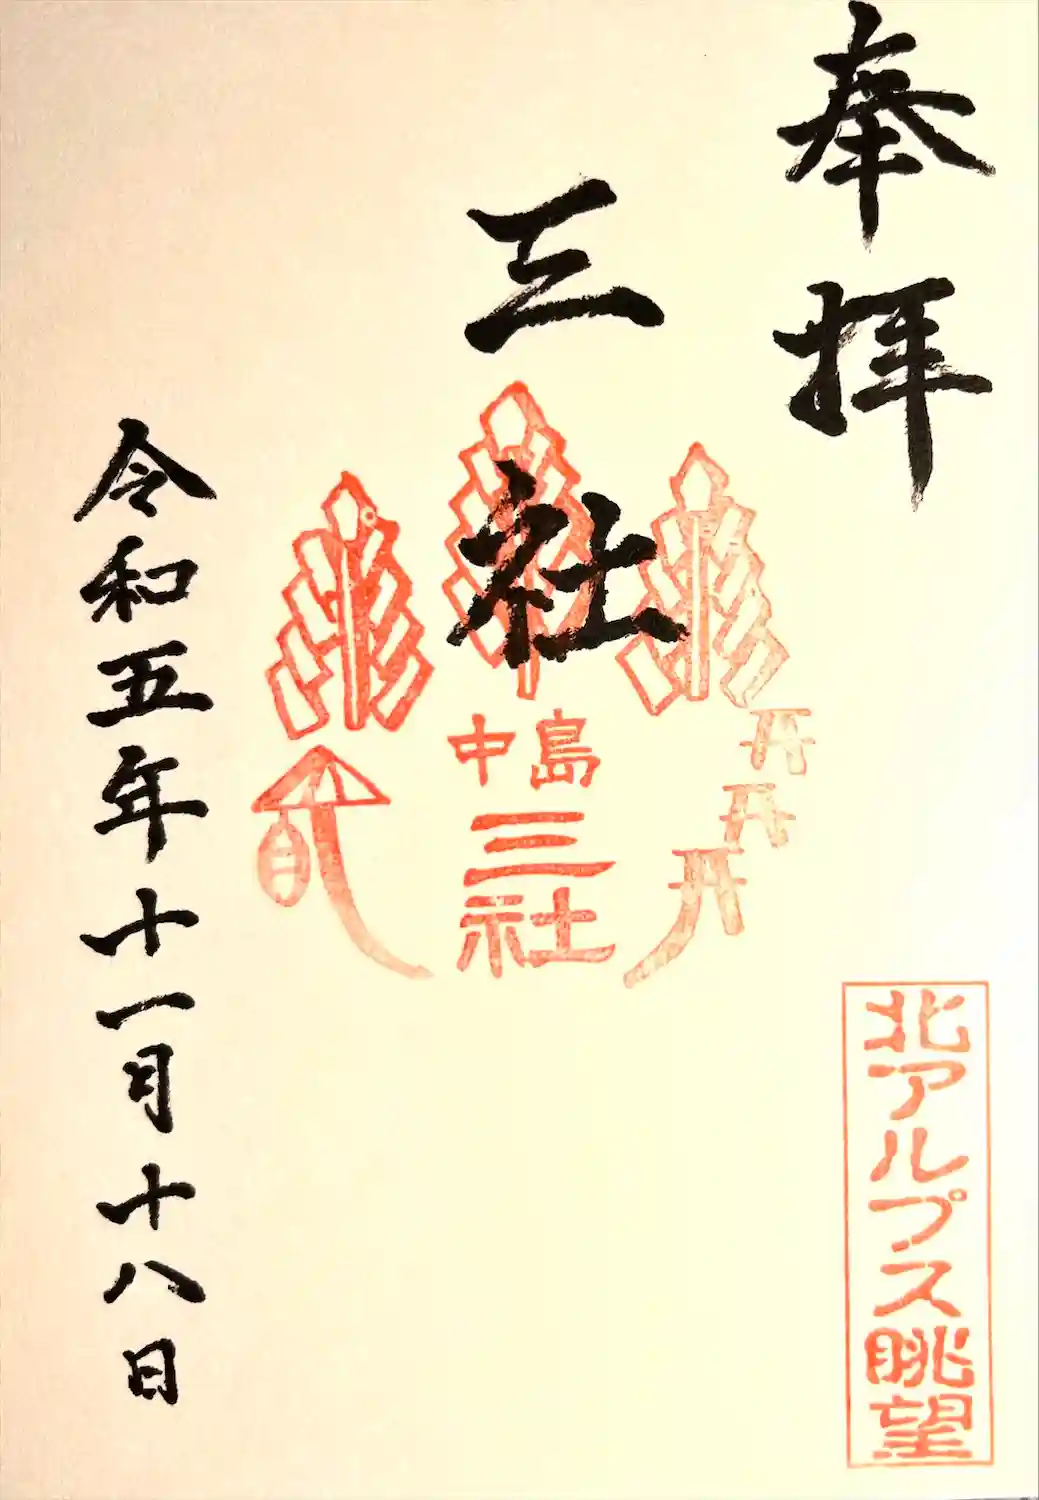 奉拝
三社
中島
三社
北アルプス眺望
令和五年十一月十八日